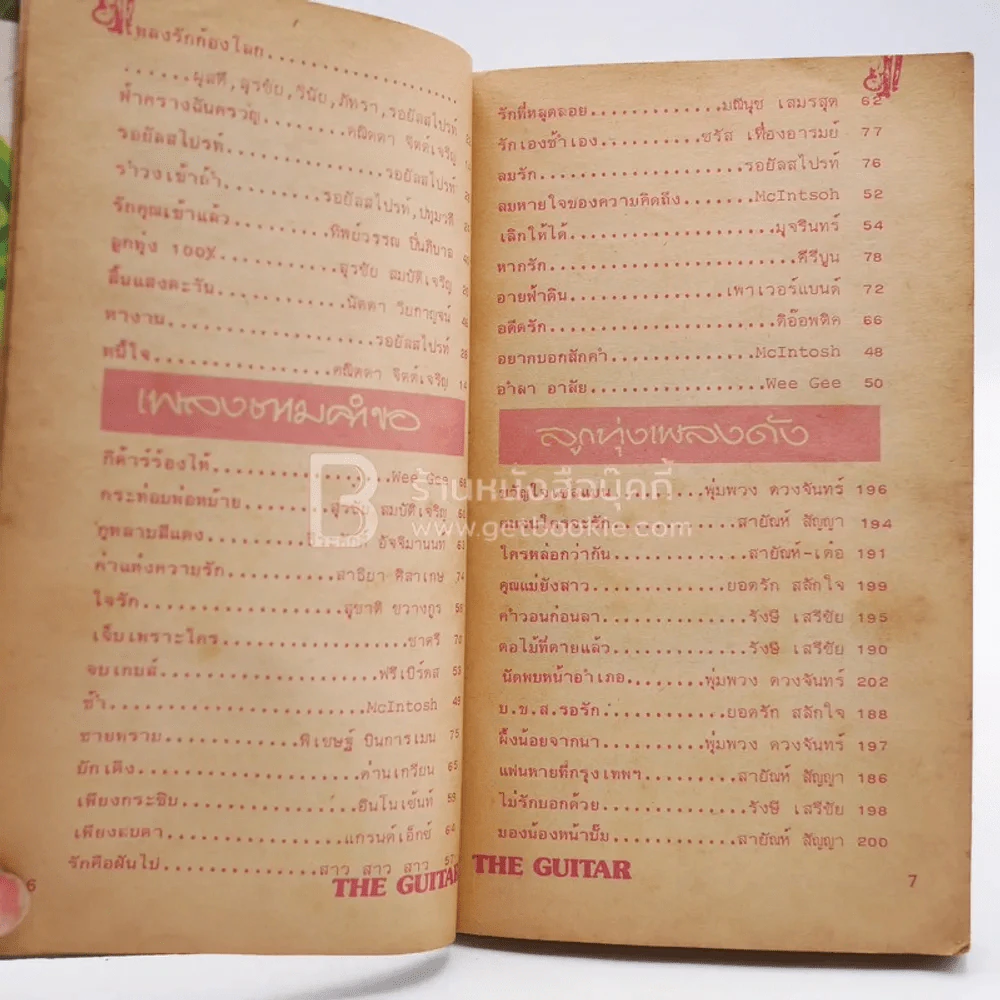 เพลงรักก้องโลก....................
......ผุสดี,สุรชัย,วินัย,ภัทรา,รอยัลสไปรท์
ฟ้าครางฉันครวญ........คณิตดา จิตต์เจริญ
รอยัลสไปรท์..............รอยัลสไปรท์
รำวงเข้าถ้ำ........รอยัลสไปรท์,ปทุมวดี
รักคุณเข้าแล้ว........ทิพย์วรรณ ปิ่นภิบาล
ลูกทุ่ง 100%........สุรชัย สมบัติเจริญ
สิ้นแสงตะวัน..........นัดดา วิยกาญจน์
หางาน..............รอยัลสไปรท์ 28
หนี้ใจ..............คณิตดา จิตต์เจริญ 14
เพลงตามคำขอ
กีต้าร์ร้องไห้..............Wee Gee
กระท่อมพ่อหม้าย........สุรชัย สมบัติเจริญ
กุหลาบสีแดง อัจจิมานนท์ 63
ค่าแห่งความรัก..........สาธิยา ศิลาเกษ 74
ใจรัก..............สุชาติ ชวางกูร
เจ็บเพราะใคร..............ชาตรี 70
จบเกมส์..............ฟรีเบิร์ดส 53
ช้ำ..............McIntosh 49
ชายหราม..........พิเชษฐ์ บินการเมน 75
ยักเต็ง..............ด่านเกวียน 65
เพียงกระซิบ..............อินโนเซ้นท์
เพียงสบตา..............แกรนด์เอ็กซ์ 64
รักคือฝันไป..............สาว สาว สาว 57
6
THE GUITAR
รักที่หลุดลอย..........มณีนุช เสมรสุต 62
รักเองช้ำเอง..........ชรัส เฟื่องอารมย์ 77
ลมรัก..............รอยัลสไปรท์ 76
ลมหายใจของความคิดถึง........McIntsoh 52
เลิกให้ได้..............มุจรินทร์ 54
หากรัก..............คีรีบูน 78
อายฟ้าดิน..............เพาเวอร์แบนด์ 72
อดีตรัก..............ดิอ๊อพติค 66
อยากบอกสักคำ..............McIntosh 48
อำลา อาลัย..............Wee Gee 50
ลูกทุ่งเพลงดัง
ขวัญใจเซลแมน..........พุ่มพวง ดวงจันทร์ 196
สายัณห์ สัญญา 194
ใครหล่อกว่ากัน..........สายัณห์-เด๋อ 191
คุณแม่ยังสาว..........ยอดรัก สลักใจ 199
คำวอนก่อนลา..........รังษี เสรีชัย 195
ดอไม้ที่ตายแล้ว..........รังษี เสรีชัย 190
นัดพบหน้าอำเภอ........พุ่มพวง ดวงจันทร์ 202
บ.ข.ส.รอรัก..........ยอดรัก สลักใจ 188
ผึ้งน้อยจากนา..........พุ่มพวง ดวงจันทร์ 197
แฟนหายที่กรุงเทพฯ........สายัณห์ สัญญา 186
ไม่รักบอกด้วย..........รังษี เสรีชัย 198
มองน้องหน้าปั๊ม..........สายัณห์ สัญญา 200
THE GUITAR
7
ร้านหนังสือบุ๊คกี้
www.getbookie.com